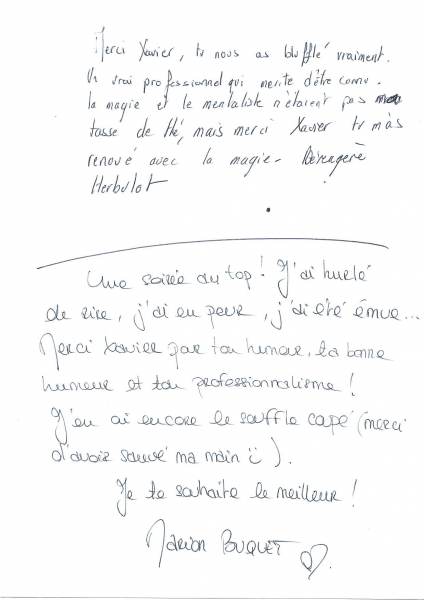 Merci Xavier, tu nous as blufflé vraiment.
Un vrai professionnel qui merite d'être connu.
la magie et le mentaliste n'étaient pas ma
tasse de thé, mais merci Xavier tu m'as
renoué avec la magie - Bérengère
Herbulot
Une soirée au top! J'ai hurlé
de rire, j'ai eu peur, j'ai été émue...
Merci Xavier par ton humour, ta bonne
humeur et ton professionnalisme!
J'en ai encore le souffle capé (merci
d'avoir sauvé ma main ü).
Je te souhaite le meilleur!
Marion BUQUET ♡.